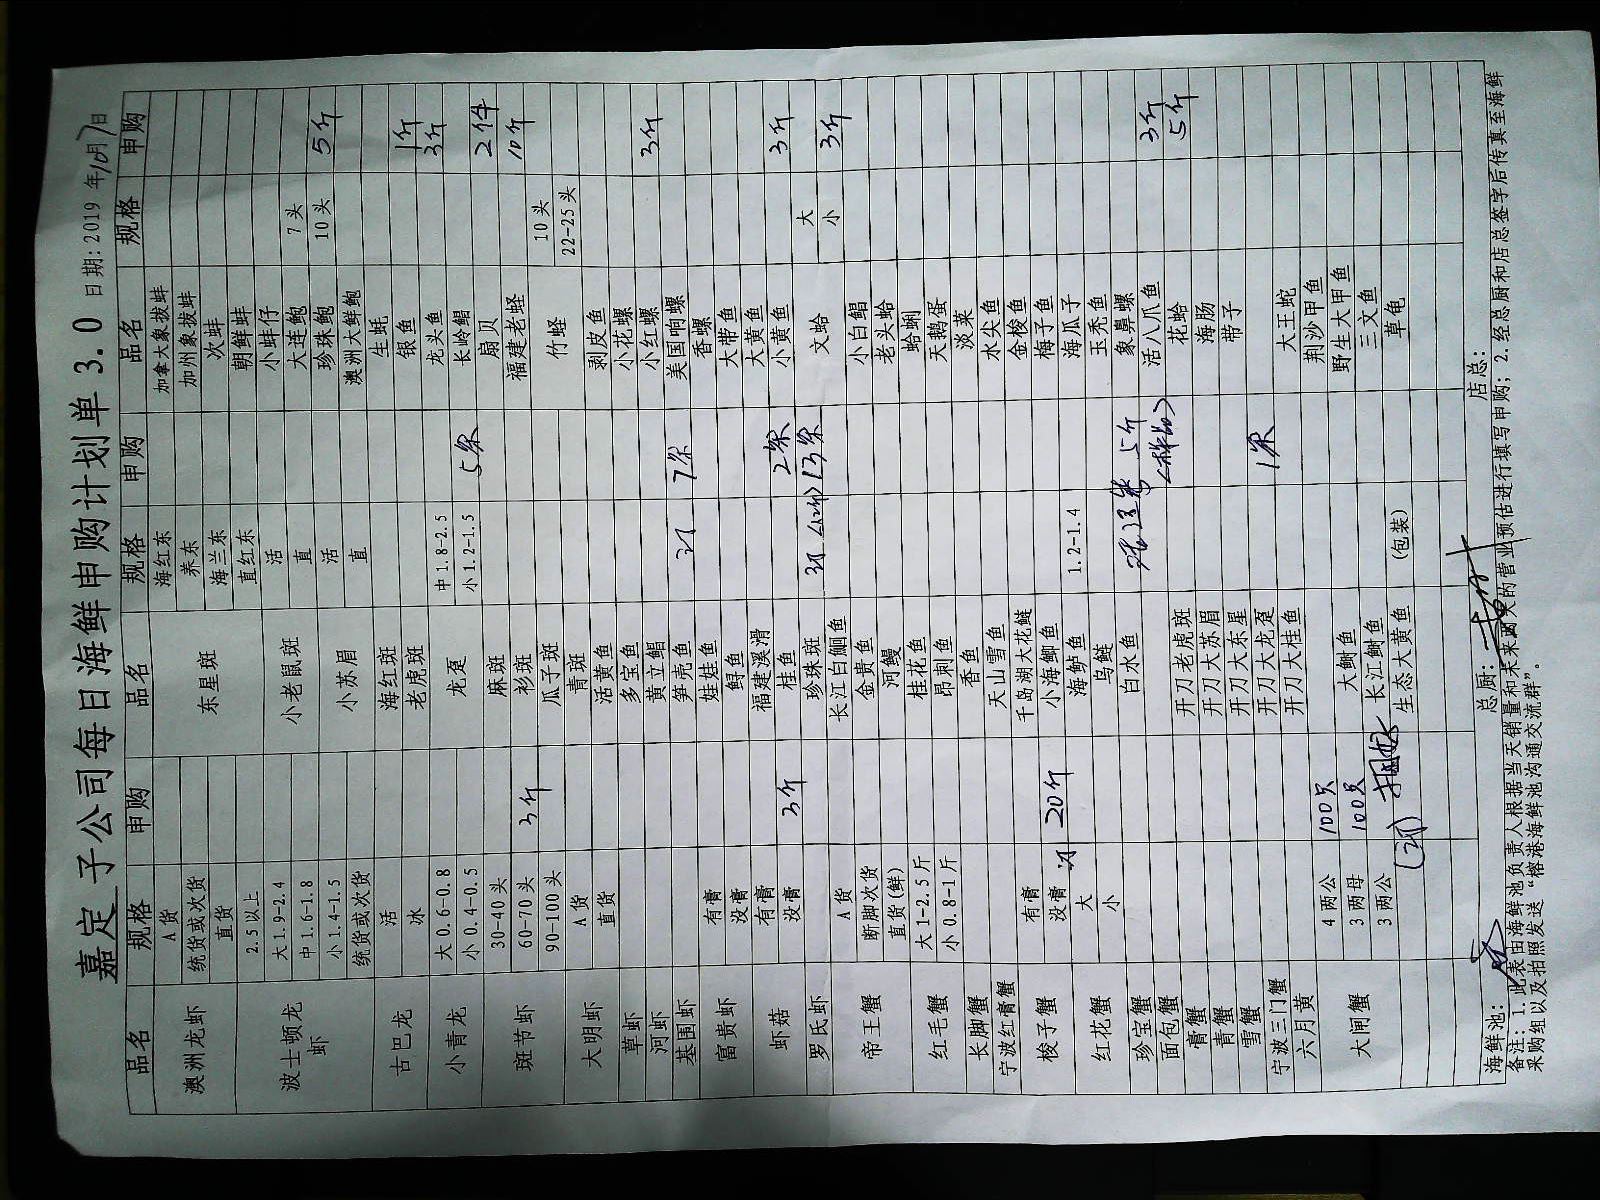 嘉定子公司每日海鲜申购计划单3.0 日期:2019年10月7日
品名 规格 申购 品名 规格 申购 品名 规格 申购
A货 海红东 加拿大象拔蚌
澳洲龙虾 统货或次货 养东 加州象拔蚌
直货 东星斑 海兰东 次蚌
2.5以上 直红东 朝鲜蚌
大1.9-2.4 活 小蚌仔
波士顿龙虾 中1.6-1.8 小老鼠斑 直 大连鲍 7头
小1.4-1.5 活 珍珠鲍 10头 5斤
统货或次货 小苏眉 直 澳洲大鲜鲍
活 海红斑 生蚝
古巴龙 冰 老虎斑 银鱼 1斤
大0.6-0.8 中1.8-2.5 龙头鱼 3斤
小青龙 小0.4-0.5 龙趸 小1.2-1.5 5条 长岭鲳
30-40头 麻斑 扇贝 2件
斑节虾 60-70头 3斤 杉斑 福建老蛏 10斤
90-100头 瓜子斑 10头
A货 青斑 竹蛏 22-25头
大明虾 直货 活黄鱼 剥皮鱼
草虾 多宝鱼 小花螺
河虾 黄立鲳 小红螺 3斤
基围虾 笋壳鱼 7条 美国响螺
有膏 娃娃鱼 香螺
富贵虾 没膏 鲟鱼 大带鱼
有膏 福建溪滑 大黄鱼
虾菇 没膏 3斤 桂鱼 2条 小黄鱼 3斤
罗氏虾 珍珠斑 13条 文蛤 大
A货 长江白鮰鱼 小 3斤
帝王蟹 断脚次货 金贵鱼 小白鲳
直货(鲜) 河鳗 老头蛤
大1-2.5斤 桂花鱼 蛤蜊
红毛蟹 小0.8-1斤 昂刺鱼 天鹅蛋
长脚蟹 香鱼 淡菜
宁波红膏蟹 天山雪鱼 水尖鱼
有膏 千岛湖大花鲢 金梭鱼
梭子蟹 没膏 20斤 小海鲫鱼 梅子鱼
大 海鲈鱼 1.2-1.4 海瓜子
红花蟹 小 乌鲢 玉秃鱼
珍宝蟹 白水鱼 5斤 象鼻螺
面包蟹 活八爪鱼 3斤
膏蟹 开刀老虎斑 花蛤 5斤
青蟹 开刀大苏眉 海肠
雪蟹 开刀大东星 带子
宁波三门蟹 开刀大龙趸 1条
六月黄 开刀大桂鱼 大王蛇
4两公 100只 荆沙甲鱼
大闸蟹 3两母 100只 大鲥鱼 野生大甲鱼
3两公 长江鲥鱼 三文鱼
生态大黄鱼 (包装) 草龟
海鲜池: 总厨: 店总:
备注:1.此表由海鲜池负责人根据当天销量和未来两天的营业预估进行填写申购;2.经总厨和店总签字后传真至海鲜
采购组以及拍照发送“榕港海鲜池沟通交流群”。